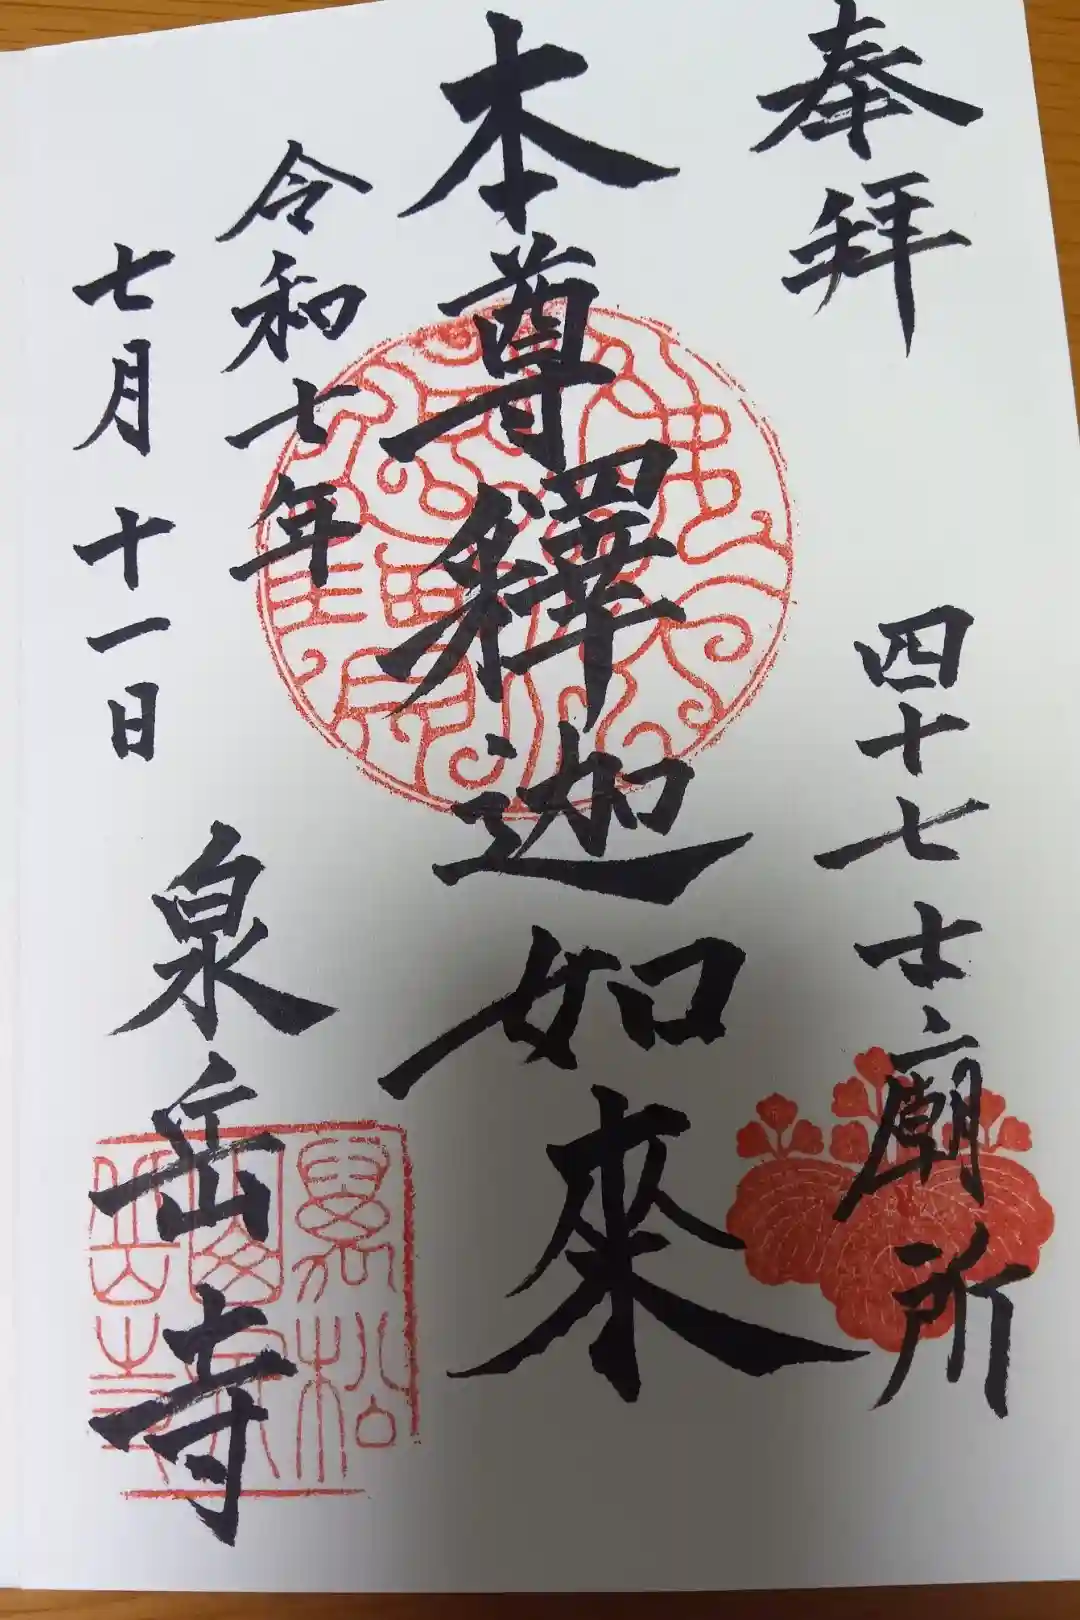 奉拝
四十七士廟所
本尊釋迦如來
令和七年
七月十一日
泉岳寺
萬松
岳寺